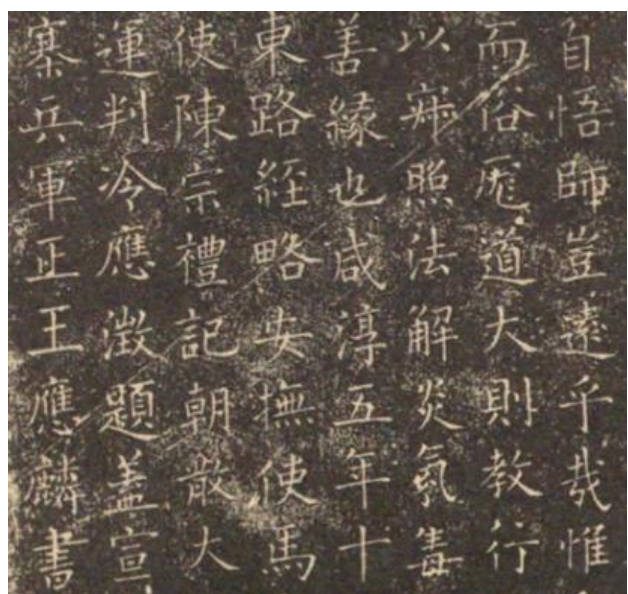 自悟師豈遠乎哉惟
而俗厖道大則教行
以寂照法解炎氛毒
善緣也咸淳五年十
東路經略安撫使馬
使陳宗禮記朝散大
運判冷應澂題蓋宣
寨兵軍正王應麟書